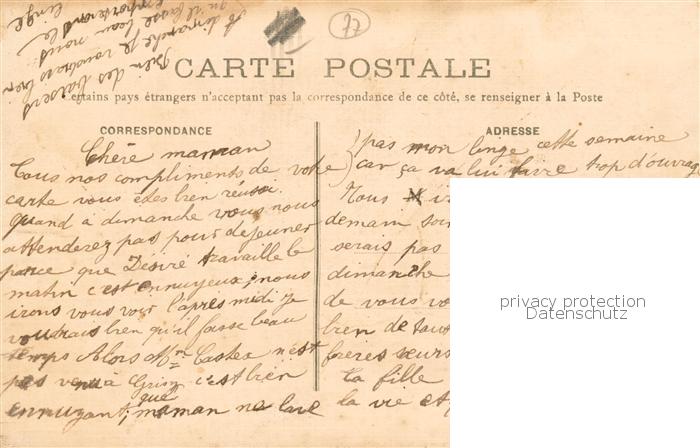 77
A dimanche je voudrais bien
qu'il fasse beau nous
emporterons le
linge
bien des baisers
CARTE POSTALE
Certains pays étrangers n'acceptant pas la correspondance de ce côté, se renseigner à la Poste
CORRESPONDANCE
Chère maman
Tous nos compliments de votre
carte vous êtes bien réussi.
quand à dimanche vous nous
attenderez pas pour déjeuner
parce que Désiré travaille le
matin c'est ennuyeux, nous
irons vous voir l'après midi je
voudrais bien qu'il fasse beau
temps Alors Mme Castex n'est
pas venu à c'est bien
ennuyant, que maman ne lave
ADRESSE
pas mon linge cette semaine
car ça va lui faire trop d'ouvrag
Nous
demain soi
serais pas
dimanche
de vous vo
bien de tout
frères seurs
ta fille
la vie et
privacy protection
Datenschutz